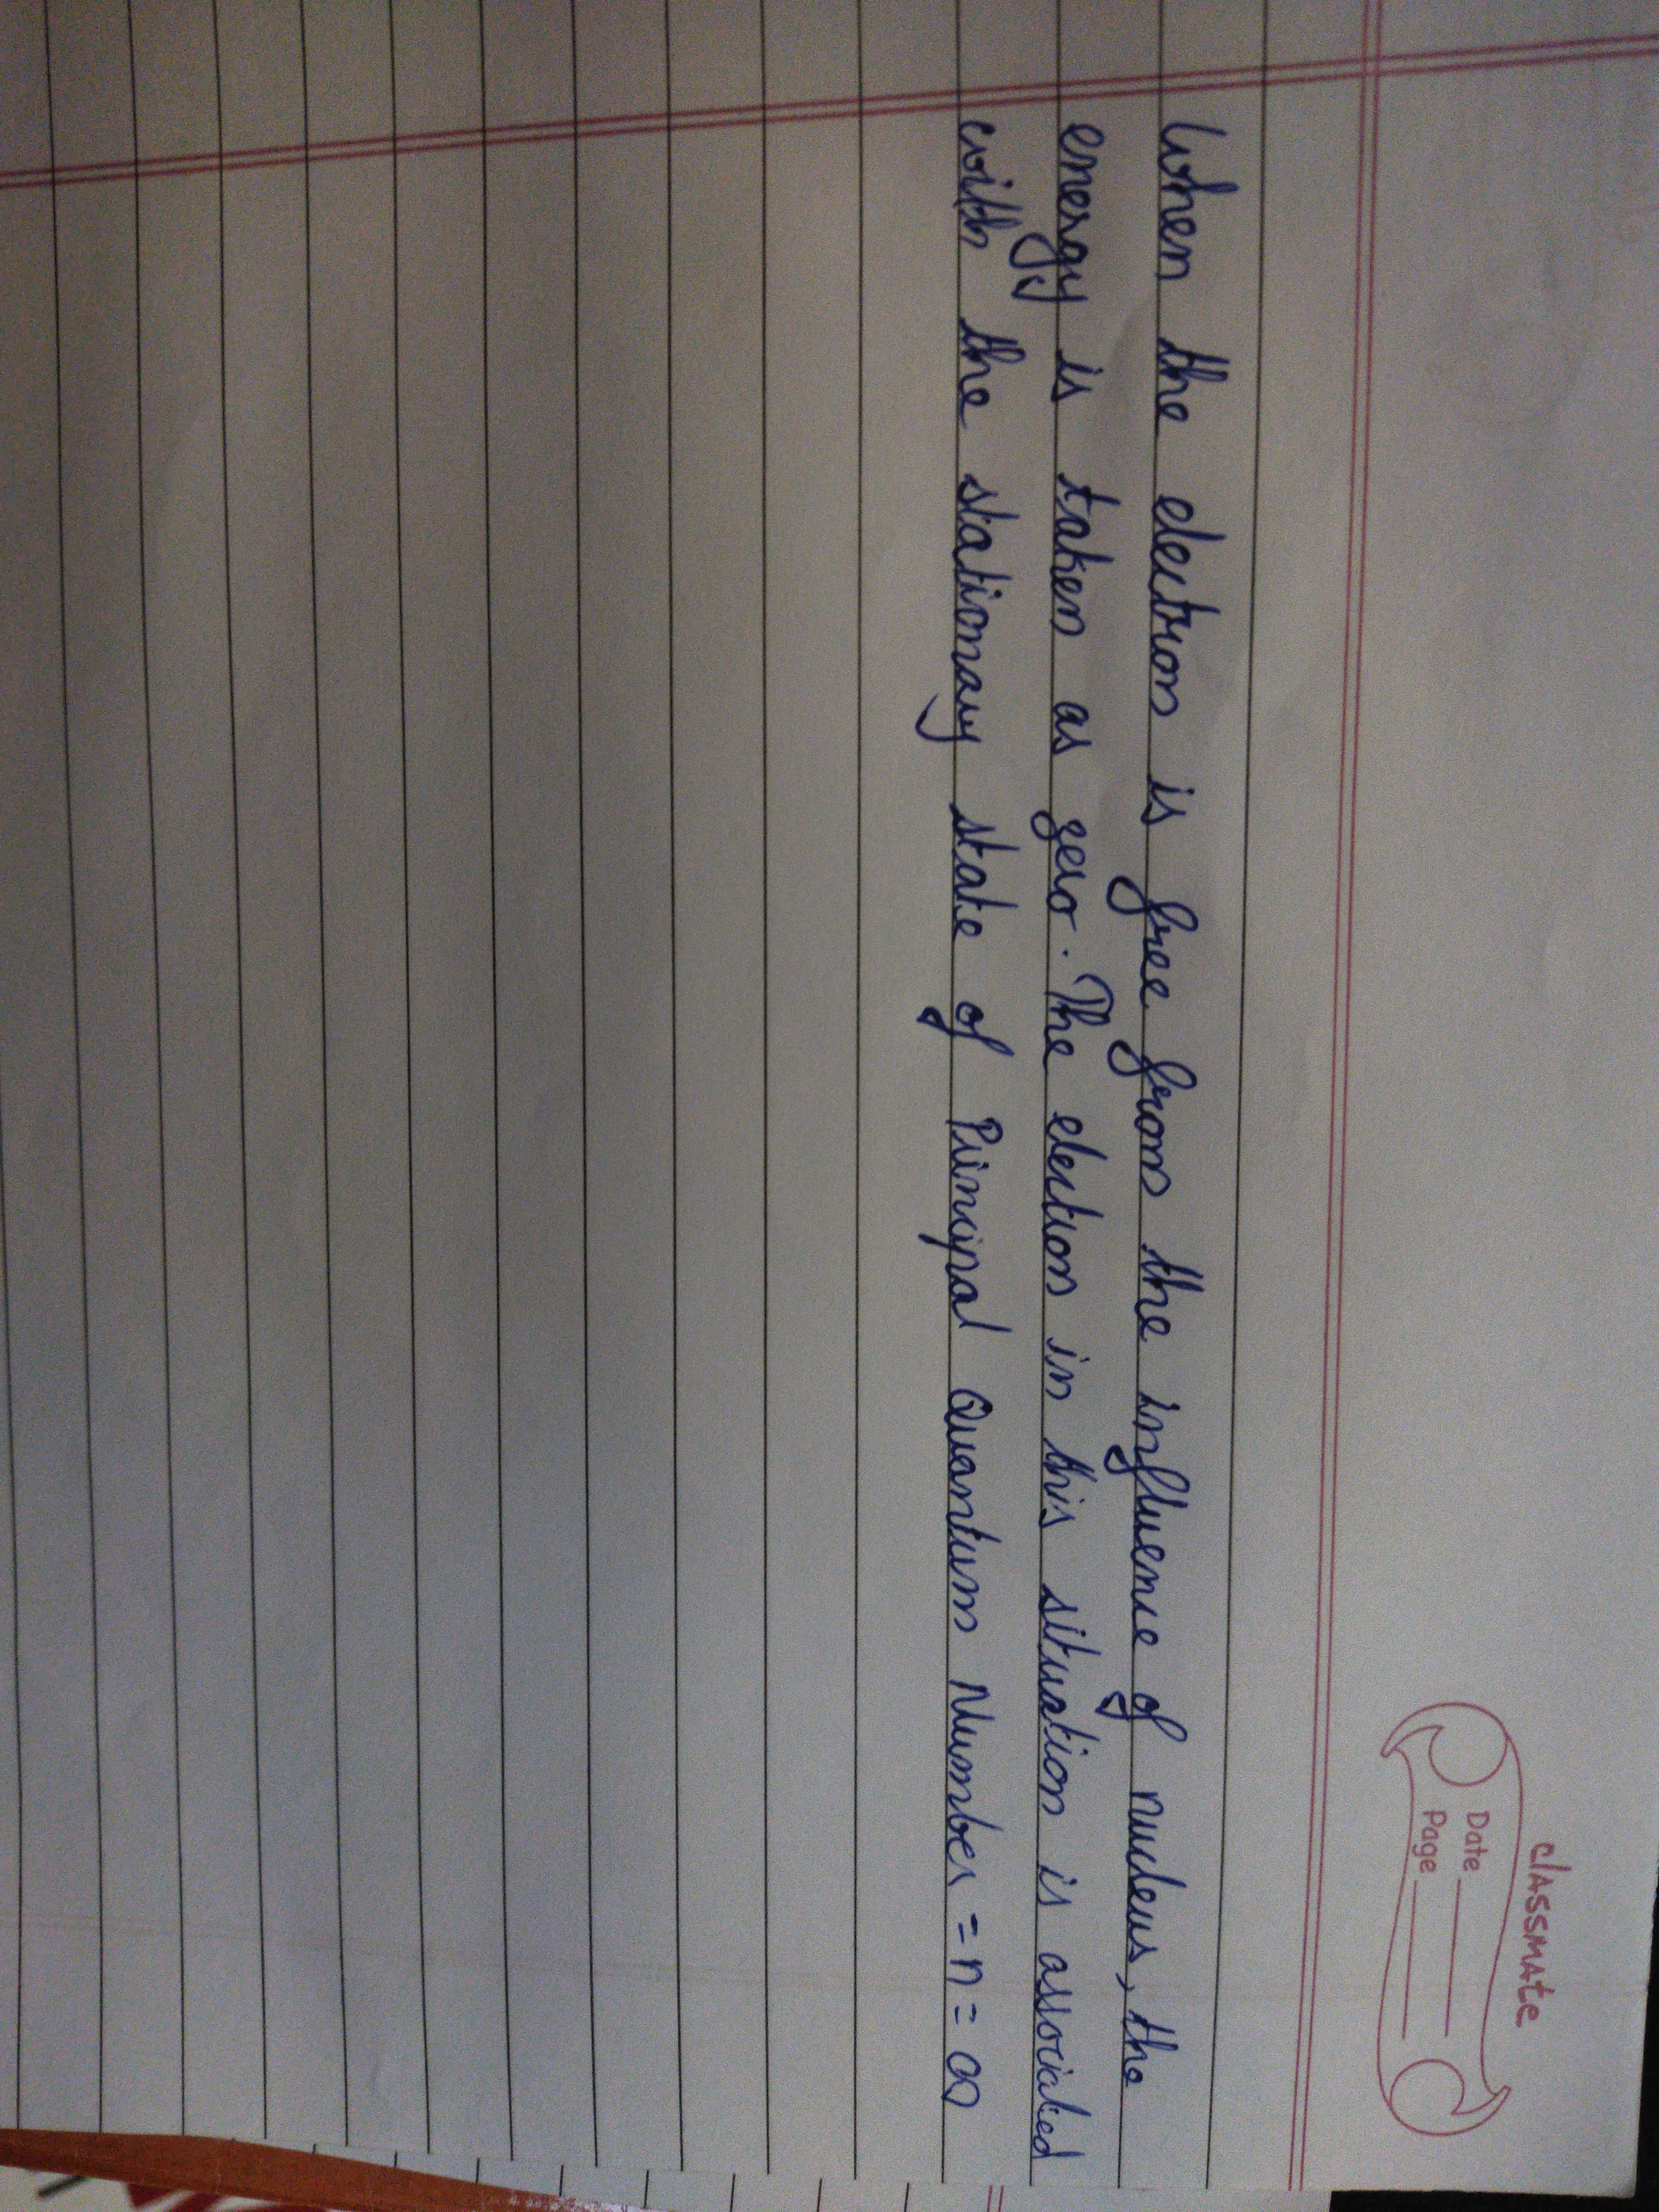 classmate
Date
Page
When the electron is free from the influence of nucleus, the
energy is taken as zero. The electron in this situation is associated
with the stationary state of Principal Quantum Number = n = ∞